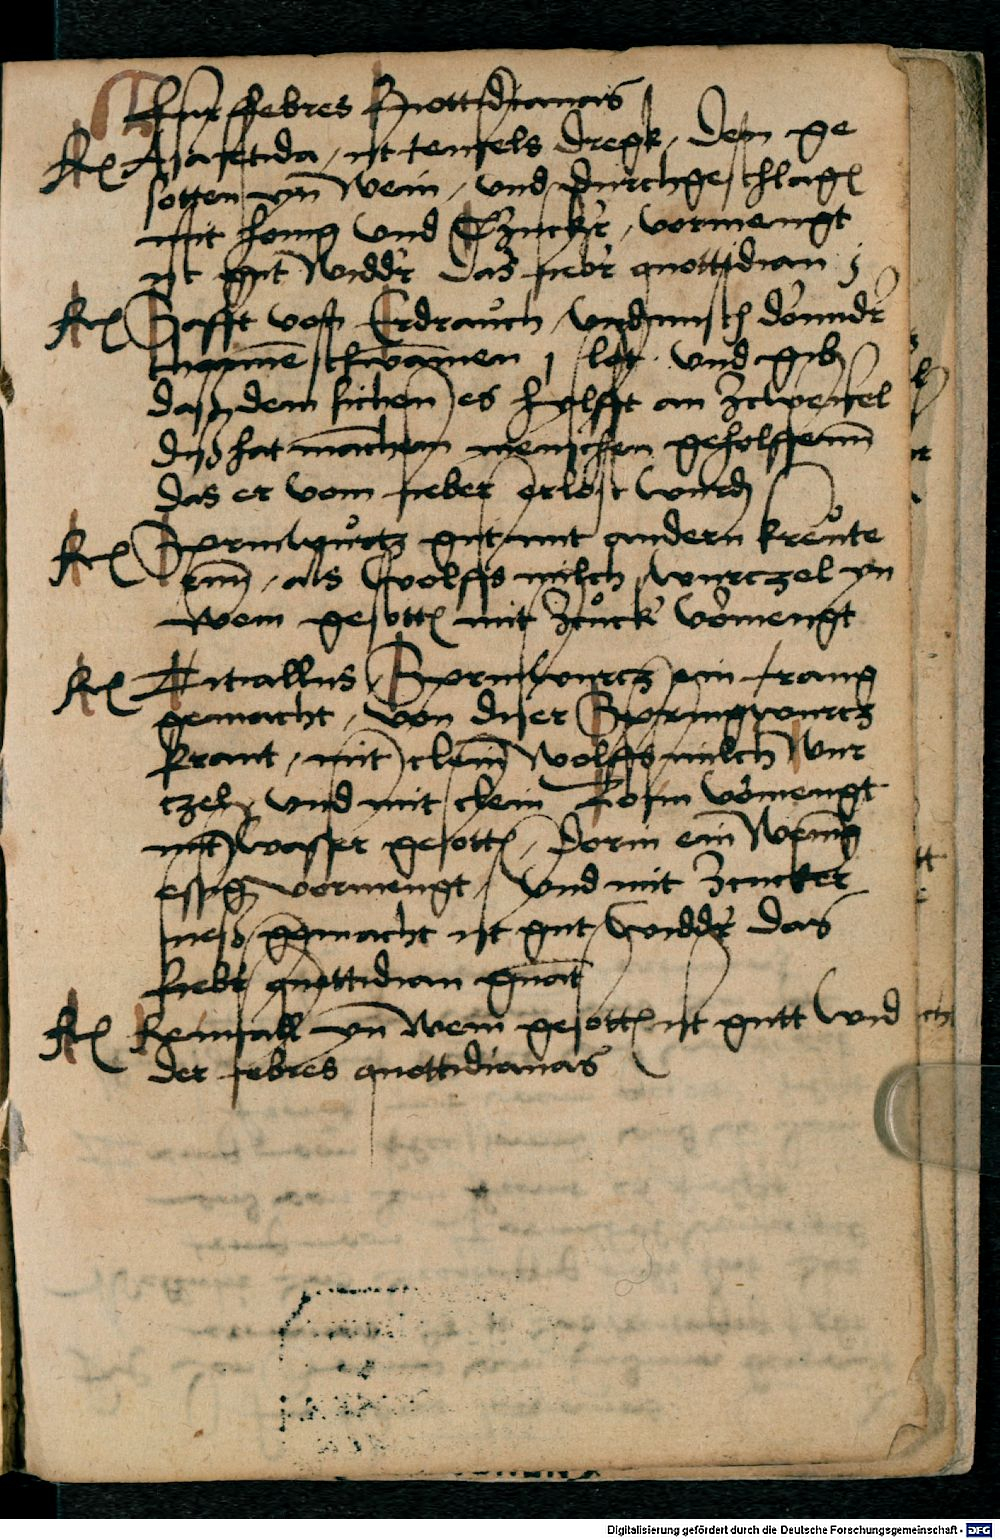 Fur febres Quottidianas
Rec Asafetida, ist teufels dregk, Dem ge
sotten yn Wein, und durchgeschlagen
mit honig und Tzucker, vormengt
ist gut Widder Das feber quottidian
Rec Safft von Erdrauch, und
und gib
das dem sichen es hylfft an Zcweyfel
dys hat manchem menschen geholffenn
das er vom feber erlost wurd
Rec Sprinckwurtz gut mit andern kreute
ernn, als Wolffs milch wurczel yn
Wein gesotten mit Zcucker vormengt
Rec Sprinckwurcz ein trang
gemacht, von diser Springwurcz
kraut, mit clein Wolffs milch Wur
czel, und mit clein Rosin vormengt
mit Wasser gesotten, Dorin ein Wenig
essig vormengt, Und mit Zcucker
sueß gemacht ist gut Widder Das
fieber quottidian gnant
Rec Reinfall yn Wein gesotten ist gutt Wid
der febres quottidianas
Digitalisierung gefördert durch die Deutsche Forschungsgemeinschaft - DFG